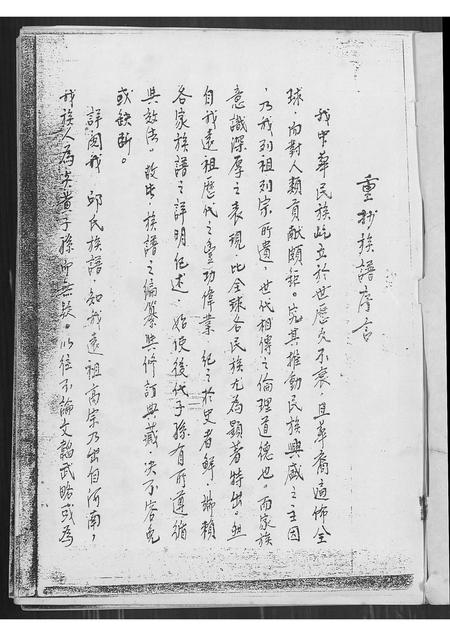 重抄族譜序言
我中華民族屹立於世歷久不衰,且華裔遍佈全
球,而對人類貢獻頗鉅。究其推動民族興盛之主因
,乃我列祖列宗所遺,世代相傳之倫理道德也,而家族
意識深厚之表現,比全球各民族尤為顯著特出,但
自我遠祖歷代之豐功偉業,紀之於史者鮮,端賴
各家族譜之詳明紀述,始使後代子孫有所遵循
與效法,故此族譜之編纂與修訂典藏,決不容免
或缺斷。
詳閱我 邱氏族譜,知我遠祖高宗乃出自河南,
我族人為炎黃子孫所無疑。以往不論文韜武略或為